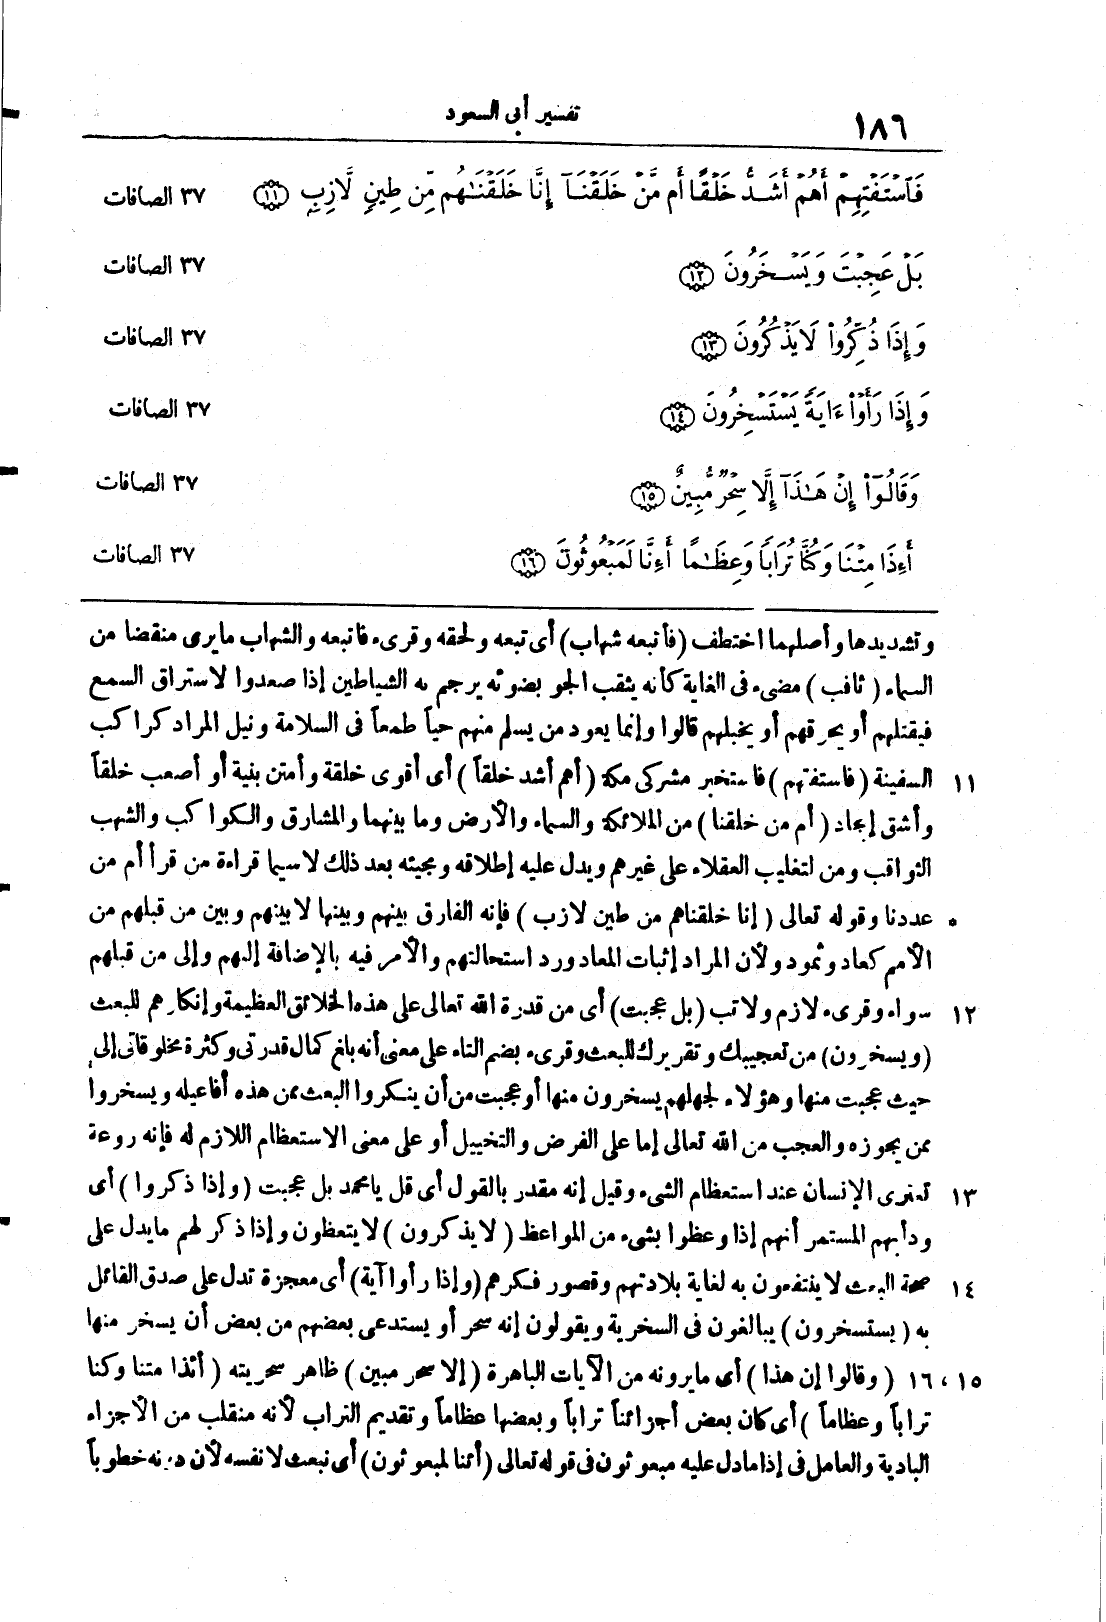 ١٨٦ تفسير أبى السعود
فَٱسْتَفْتِهِمْ أَهُمْ أَشَدُّ خَلْقًا أَم مَّنْ خَلَقْنَآ إِنَّا خَلَقْنَٰهُم مِّن طِينٍ لَّازِبٍ ﴿١١﴾ ٣٧ الصافات
بَلْ عَجِبْتَ وَيَسْخَرُونَ ﴿١٢﴾ ٣٧ الصافات
وَإِذَا ذُكِّرُوا۟ لَا يَذْكُرُونَ ﴿١٣﴾ ٣٧ الصافات
وَإِذَا رَأَوْا۟ ءَايَةً يَسْتَسْخِرُونَ ﴿١٤﴾ ٣٧ الصافات
وَقَالُوٓا۟ إِنْ هَٰذَآ إِلَّا سِحْرٌ مُّبِينٌ ﴿١٥﴾ ٣٧ الصافات
أَءِذَا مِتْنَا وَكُنَّا تُرَابًا وَعِظَٰمًا أَءِنَّا لَمَبْعُوثُونَ ﴿١٦﴾ ٣٧ الصافات
وتشديدها وأصلهما اختطف (فأتبعه شهاب) أى تبعه ولحقه وقرىء فاتبعه والشهاب مايرى منقضا من
السماء (ثاقب) مضىء فى الغاية كأنه يثقب الجو بضوئه يرجم به الشياطين إذا صعدوا لاستراق السمع
فيقتلهم أو يحرقهم أو يخبلهم قالوا وإنما يعود من يسلم منهم حياً طمعاً فى السلامة ونيل المراد كراكب
١١ السفينة (فاستفتهم) فاستخبر مشركى مكة (أهم أشد خلقاً) أى أقوى خلقة وأمتن بنية أو أصعب خلقاً
وأشق إيجاد (أم من خلقنا) من الملائكة والسماء والأرض وما بينهما والمشارق والكواكب والشهب
الثواقب ومن لتغليب العقلاء على غيرهم ويدل عليه إطلاقه ومجيئه بعد ذلك لاسيما قراءة من قرأ أم من
* عددنا وقوله تعالى (إنا خلقناهم من طين لازب) فإنه الفارق بينهم وبينها لابينهم وبين من قبلهم من
الأمم كعاد وثمود ولأن المراد إثبات المعاد ورد استحالتهم والأمر فيه بالإضافة إليهم وإلى من قبلهم
١٢ سواء وقرىء لازم ولاتب (بل عجبت) أى من قدرة الله تعالى على هذه الخلائق العظيمة وإنكارهم للبعث
(ويسخرون) من تعجيبك وتقريرك للبعث وقرىء بضم التاء على معنى أنه بلغ كمال قدرتى وكثرة مخلوقاتى إلى
حيث عجبت منها وهؤلاء لجهلهم يسخرون منها أو عجبت من أن ينكروا البعث ممن هذه أفاعيله ويسخروا
ممن يجوزه والعجب من الله تعالى إما على الفرض والتخييل أو على معنى الاستعظام اللازم له فإنه روعة
١٣ تعترى الإنسان عند استعظام الشىء وقيل إنه مقدر بالقول أى قل يامحمد بل عجبت (وإذا ذكروا) أى
ودأبهم المستمر أنهم إذا وعظوا بشىء من المواعظ (لايذكرون) لايتعظون وإذا ذكر لهم مايدل على
١٤ صحة البعث لاينتفعون به لغاية بلادتهم وقصور فكرهم (وإذا رأوا آية) أى معجزة تدل على صدق القائل
به (يستسخرون) يبالغون فى السخرية ويقولون إنه سحر أو يستدعى بعضهم من بعض أن يسخر منها
١٥، ١٦ (وقالوا إن هذا) أى مايرونه من الآيات الباهرة (إلا سحر مبين) ظاهر سحريته (أئذا متنا وكنا
تراباً وعظاماً) أى كان بعض أجزائنا تراباً وبعضها عظاماً وتقديم التراب لأنه منقلب من الأجزاء
البادية والعامل فى إذا مادل عليه مبعوثون فى قوله تعالى (أئنا لمبعوثون) أى نبعث لانفسه لأن دونه خطوباً